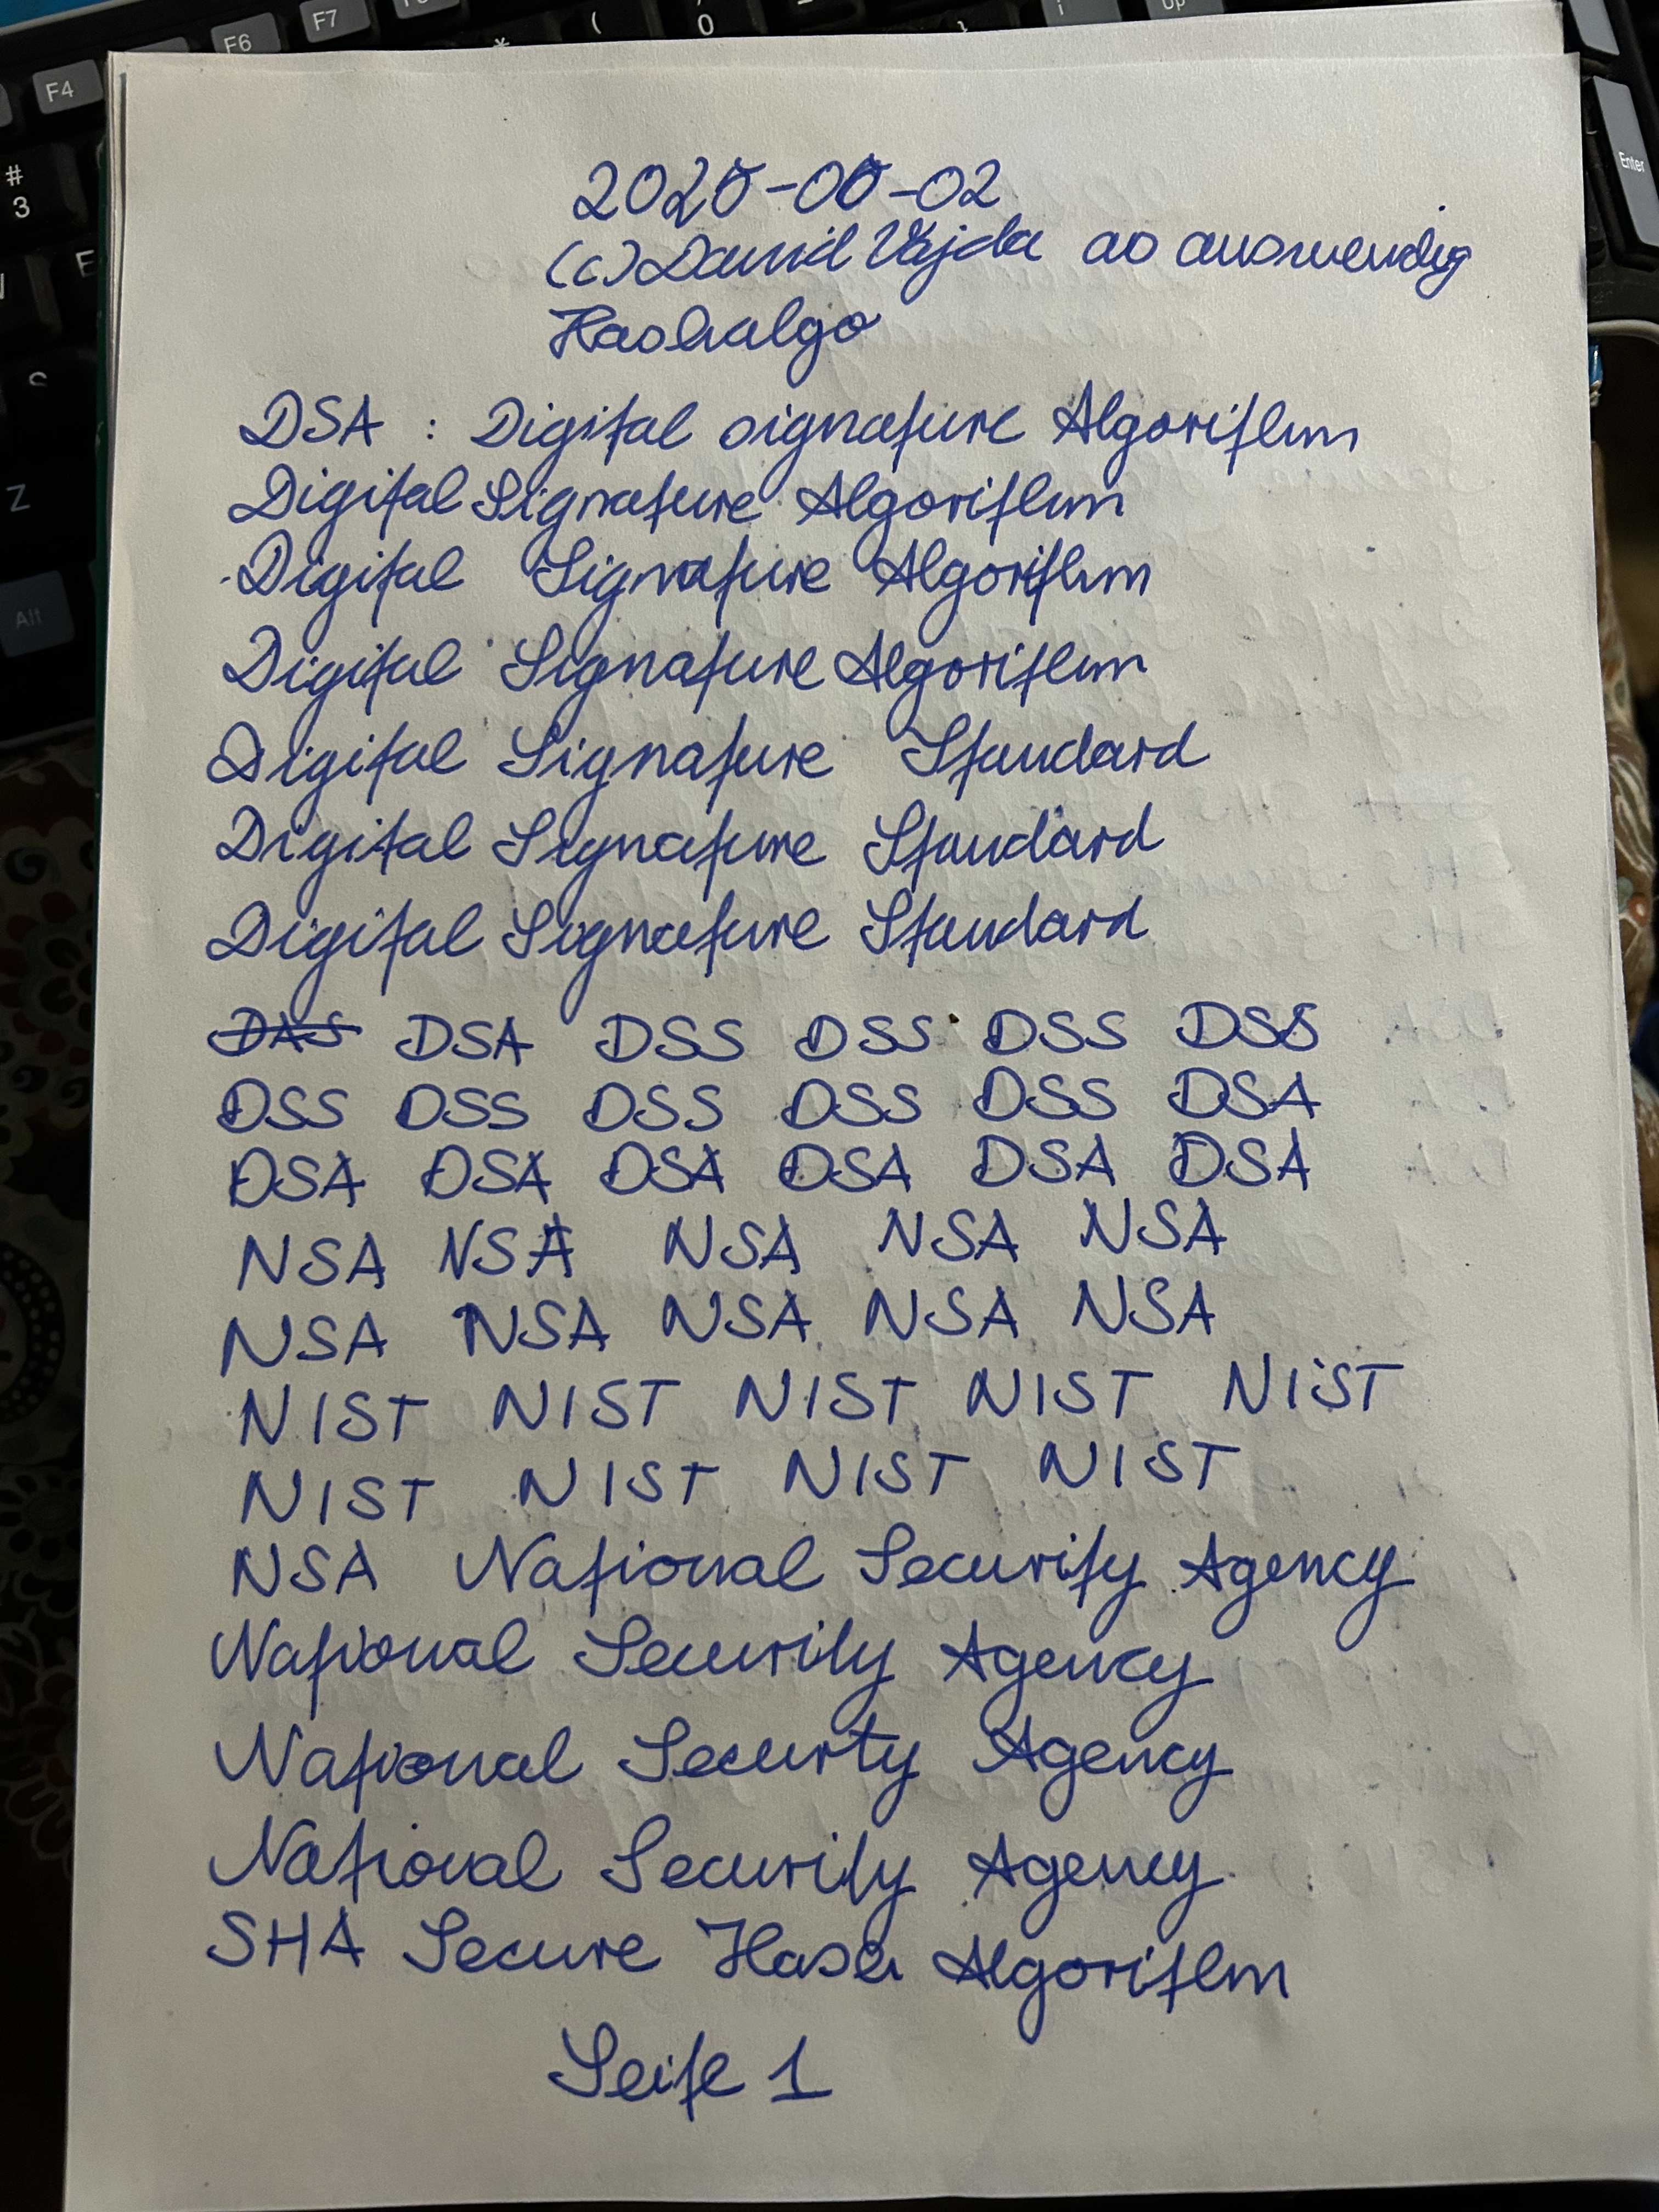 2025-05-02
(c) David Vajda ao auswendig
Hashalgo
DSA : Digital signature Algorithm
Digital Signature Algorithm
Digital Signature Algorithm
Digital Signature Algorithm
Digital Signature Standard
Digital Signature Standard
Digital Signature Standard
DAS DSA DSS DSS DSS DSS
DSS DSS DSS DSS DSS DSA
DSA DSA DSA DSA DSA DSA
NSA NSA NSA NSA NSA
NSA NSA NSA NSA NSA
NIST NIST NIST NIST NIST
NIST NIST NIST NIST
NSA National Security Agency
National Security Agency
National Securty Agency
National Security Agency
SHA Secure Hash Algorithm
Seite 1
F4
F6
F7
#
3
E
Z
Alt
0
Enter